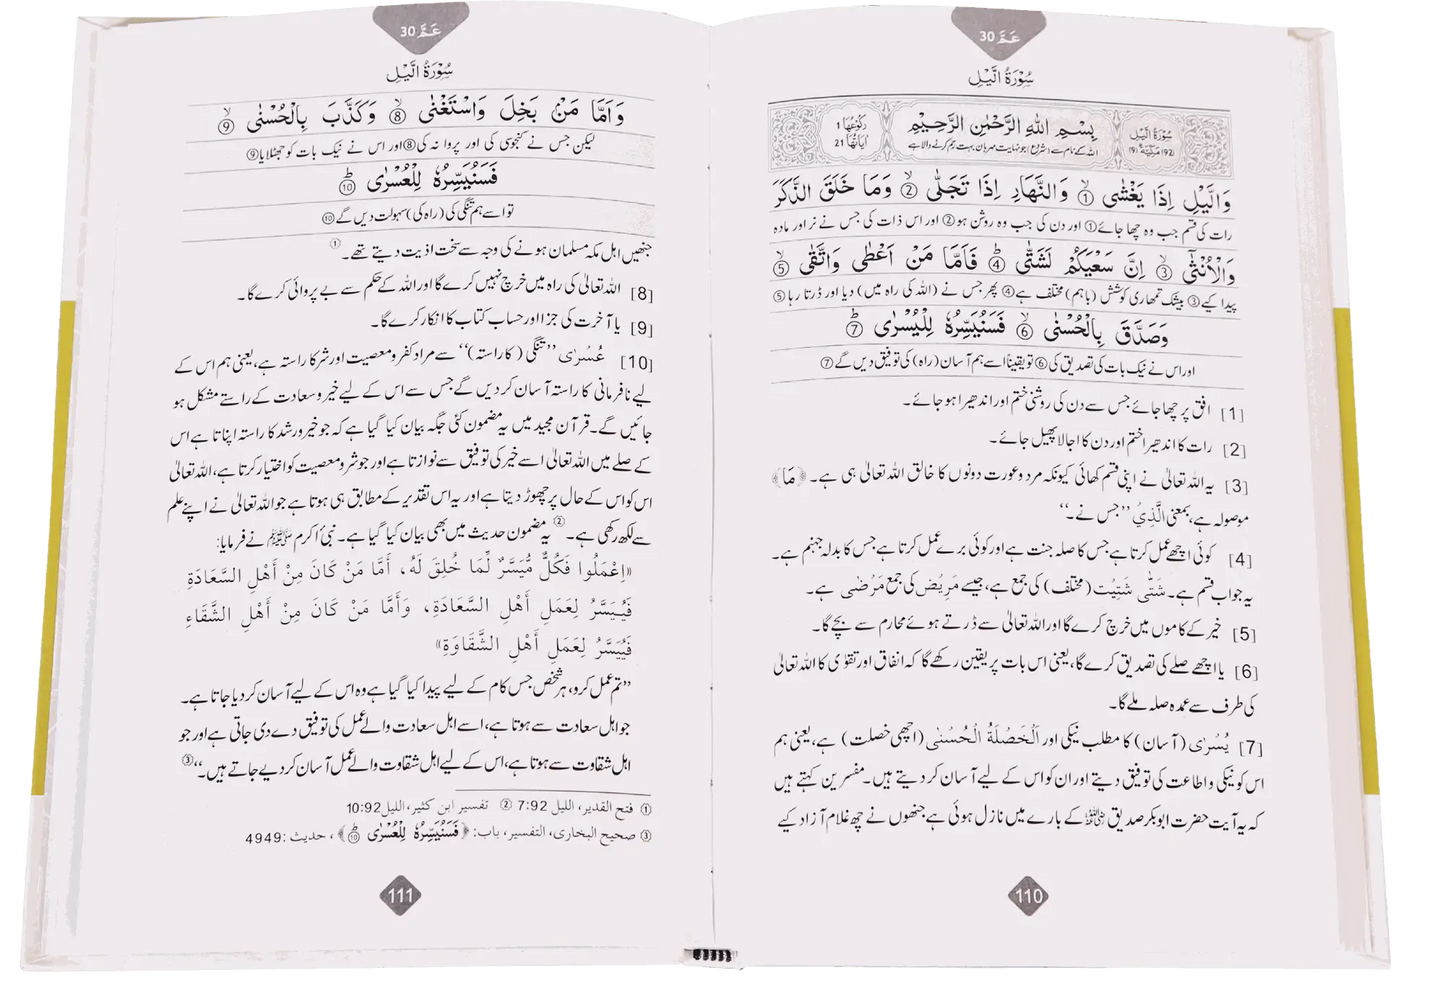 عَمَّ 30
سُوْرَةُ الَّيْلِ
سُوْرَةُ الَّيْلِ
(92) مَكِّيَّةٌ (9)
بِسْمِ اللهِ الرَّحْمٰنِ الرَّحِيْمِ
اللہ کے نام سے (شروع) جو نہایت مہربان بہت رحم کرنے والا ہے
رُكُوْعُهَا 1
اٰيَاتُهَا 21
وَالَّيْلِ اِذَا يَغْشٰى ① وَالنَّهَارِ اِذَا تَجَلّٰى ② وَمَا خَلَقَ الذَّكَرَ
رات کی قسم جب وہ چھا جائے ① اور دن کی جب وہ روشن ہو ② اور اس ذات کی جس نے نر اور مادہ
وَالْاُنْثٰٓى ③ اِنَّ سَعْيَكُمْ لَشَتّٰى ④ فَاَمَّا مَنْ اَعْطٰى وَاتَّقٰى ⑤
پیدا کیے ③ بیشک تمھاری کوشش (باہم) مختلف ہے ④ پھر جس نے (اللہ کی راہ میں) دیا اور ڈرتا رہا ⑤
وَصَدَّقَ بِالْحُسْنٰى ⑥ فَسَنُيَسِّرُهٗ لِلْيُسْرٰى ⑦
اور اس نے نیک بات کی تصدیق کی ⑥ تو یقیناً اسے ہم آسان (راہ) کی توفیق دیں گے ⑦
[1] افق پر چھا جائے جس سے دن کی روشنی ختم اور اندھیرا ہو جائے۔
[2] رات کا اندھیرا ختم اور دن کا اجالا پھیل جائے۔
[3] یہ اللہ تعالیٰ نے اپنی قسم کھائی کیونکہ مرد و عورت دونوں کا خالق اللہ تعالیٰ ہی ہے۔ ﴿مَا﴾
موصولہ ہے، بمعنی الَّذِيْ ’’جس نے۔‘‘
[4] کوئی اچھے عمل کرتا ہے جس کا صلہ جنت ہے اور کوئی برے عمل کرتا ہے جس کا بدلہ جہنم ہے۔
یہ جواب قسم ہے۔ شَتّٰى شَتِيْت (مختلف) کی جمع ہے، جیسے مَرِيْض کی جمع مَرْضٰى ہے۔
[5] خیر کے کاموں میں خرچ کرے گا اور اللہ تعالیٰ سے ڈرتے ہوئے محارم سے بچے گا۔
[6] یا اچھے صلے کی تصدیق کرے گا، یعنی اس بات پر یقین رکھے گا کہ انفاق اور تقوٰی کا اللہ تعالیٰ
کی طرف سے عمدہ صلہ ملے گا۔
[7] يُسْرٰى (آسان) کا مطلب نیکی اور اَلْخَصْلَةُ الْحُسْنٰى (اچھی خصلت) ہے، یعنی ہم
اس کو نیکی و اطاعت کی توفیق دیتے اور ان کو اس کے لیے آسان کر دیتے ہیں۔ مفسرین کہتے ہیں
کہ یہ آیت حضرت ابوبکر صدیق کے بارے میں نازل ہوئی ہے جنھوں نے چھ غلام آزاد کیے
110
عَمَّ 30
سُوْرَةُ الَّيْلِ
وَاَمَّا مَنْۢ بَخِلَ وَاسْتَغْنٰى ⑧ وَكَذَّبَ بِالْحُسْنٰى ⑨
لیکن جس نے کنجوسی کی اور پروا نہ کی ⑧ اور اس نے نیک بات کو جھٹلایا ⑨
فَسَنُيَسِّرُهٗ لِلْعُسْرٰى ⑩
تو اسے ہم تنگی کی (راہ کی) سہولت دیں گے ⑩
جنھیں اہل مکہ مسلمان ہونے کی وجہ سے سخت اذیت دیتے تھے۔①
[8] اللہ تعالیٰ کی راہ میں خرچ نہیں کرے گا اور اللہ کے حکم سے بے پروائی کرے گا۔
[9] یا آخرت کی جزا اور حساب کتاب کا انکار کرے گا۔
[10] عُسْرٰى ’’تنگی (کا راستہ)‘‘ سے مراد کفر و معصیت اور شر کا راستہ ہے، یعنی ہم اس کے
لیے نافرمانی کا راستہ آسان کر دیں گے جس سے اس کے لیے خیر و سعادت کے راستے مشکل ہو
جائیں گے۔ قرآن مجید میں یہ مضمون کئی جگہ بیان کیا گیا ہے کہ جو خیر و رشد کا راستہ اپناتا ہے اس
کے صلے میں اللہ تعالیٰ اسے خیر کی توفیق سے نوازتا ہے اور جو شر و معصیت کو اختیار کرتا ہے، اللہ تعالیٰ
اس کو اس کے حال پر چھوڑ دیتا ہے اور یہ اس تقدیر کے مطابق ہی ہوتا ہے جو اللہ تعالیٰ نے اپنے علم
سے لکھ رکھی ہے۔② یہ مضمون حدیث میں بھی بیان کیا گیا ہے۔ نبی اکرم ﷺ نے فرمایا:
«اِعْمَلُوا فَكُلٌّ مُّيَسَّرٌ لِّمَا خُلِقَ لَهُ، أَمَّا مَنْ كَانَ مِنْ أَهْلِ السَّعَادَةِ
فَيُيَسَّرُ لِعَمَلِ أَهْلِ السَّعَادَةِ، وَأَمَّا مَنْ كَانَ مِنْ أَهْلِ الشَّقَاءِ
فَيُيَسَّرُ لِعَمَلِ أَهْلِ الشَّقَاوَةِ»
’’تم عمل کرو، ہر شخص جس کام کے لیے پیدا کیا گیا ہے وہ اس کے لیے آسان کر دیا جاتا ہے۔
جو اہل سعادت سے ہوتا ہے، اسے اہل سعادت والے عمل کی توفیق دے دی جاتی ہے اور جو
اہل شقاوت سے ہوتا ہے، اس کے لیے اہل شقاوت والے عمل آسان کر دیے جاتے ہیں۔‘‘③
① فتح القدير، الليل 7:92 ② تفسير ابن كثير، الليل 10:92
③ صحيح البخاري، التفسير، باب: ﴿فَسَنُيَسِّرُهٗ لِلْعُسْرٰى ⑩﴾، حديث: 4949
111